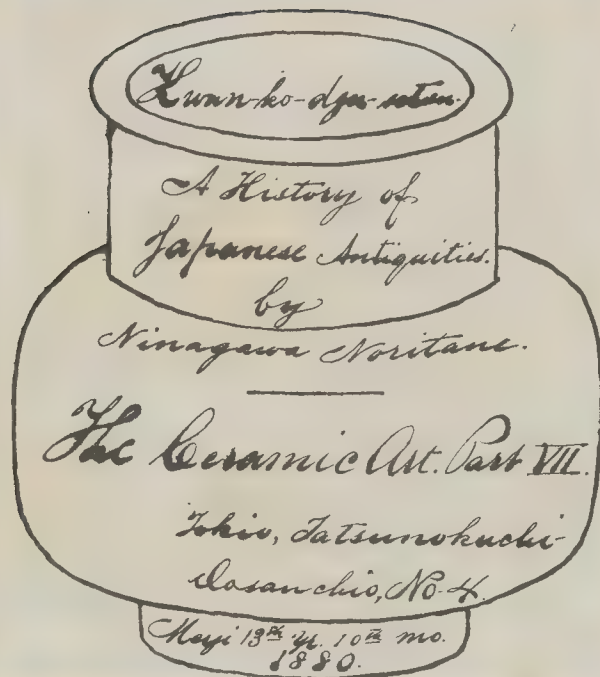 Kwan-ko-dzu-setsu.
A History of
Japanese Antiquities.
by
Ninagawa Noritane.
The Ceramic Art. Part VII.
Tokio, Tatsunokuchi-
Dosanchio, No 4.
Meyi 13th yr. 10th mo.
1880.